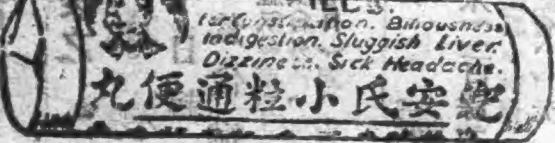 for Constipation. Biliousness
Indigestion. Sluggish Liver.
Dizziness. Sick Headache.
兜安氏小粒通便丸